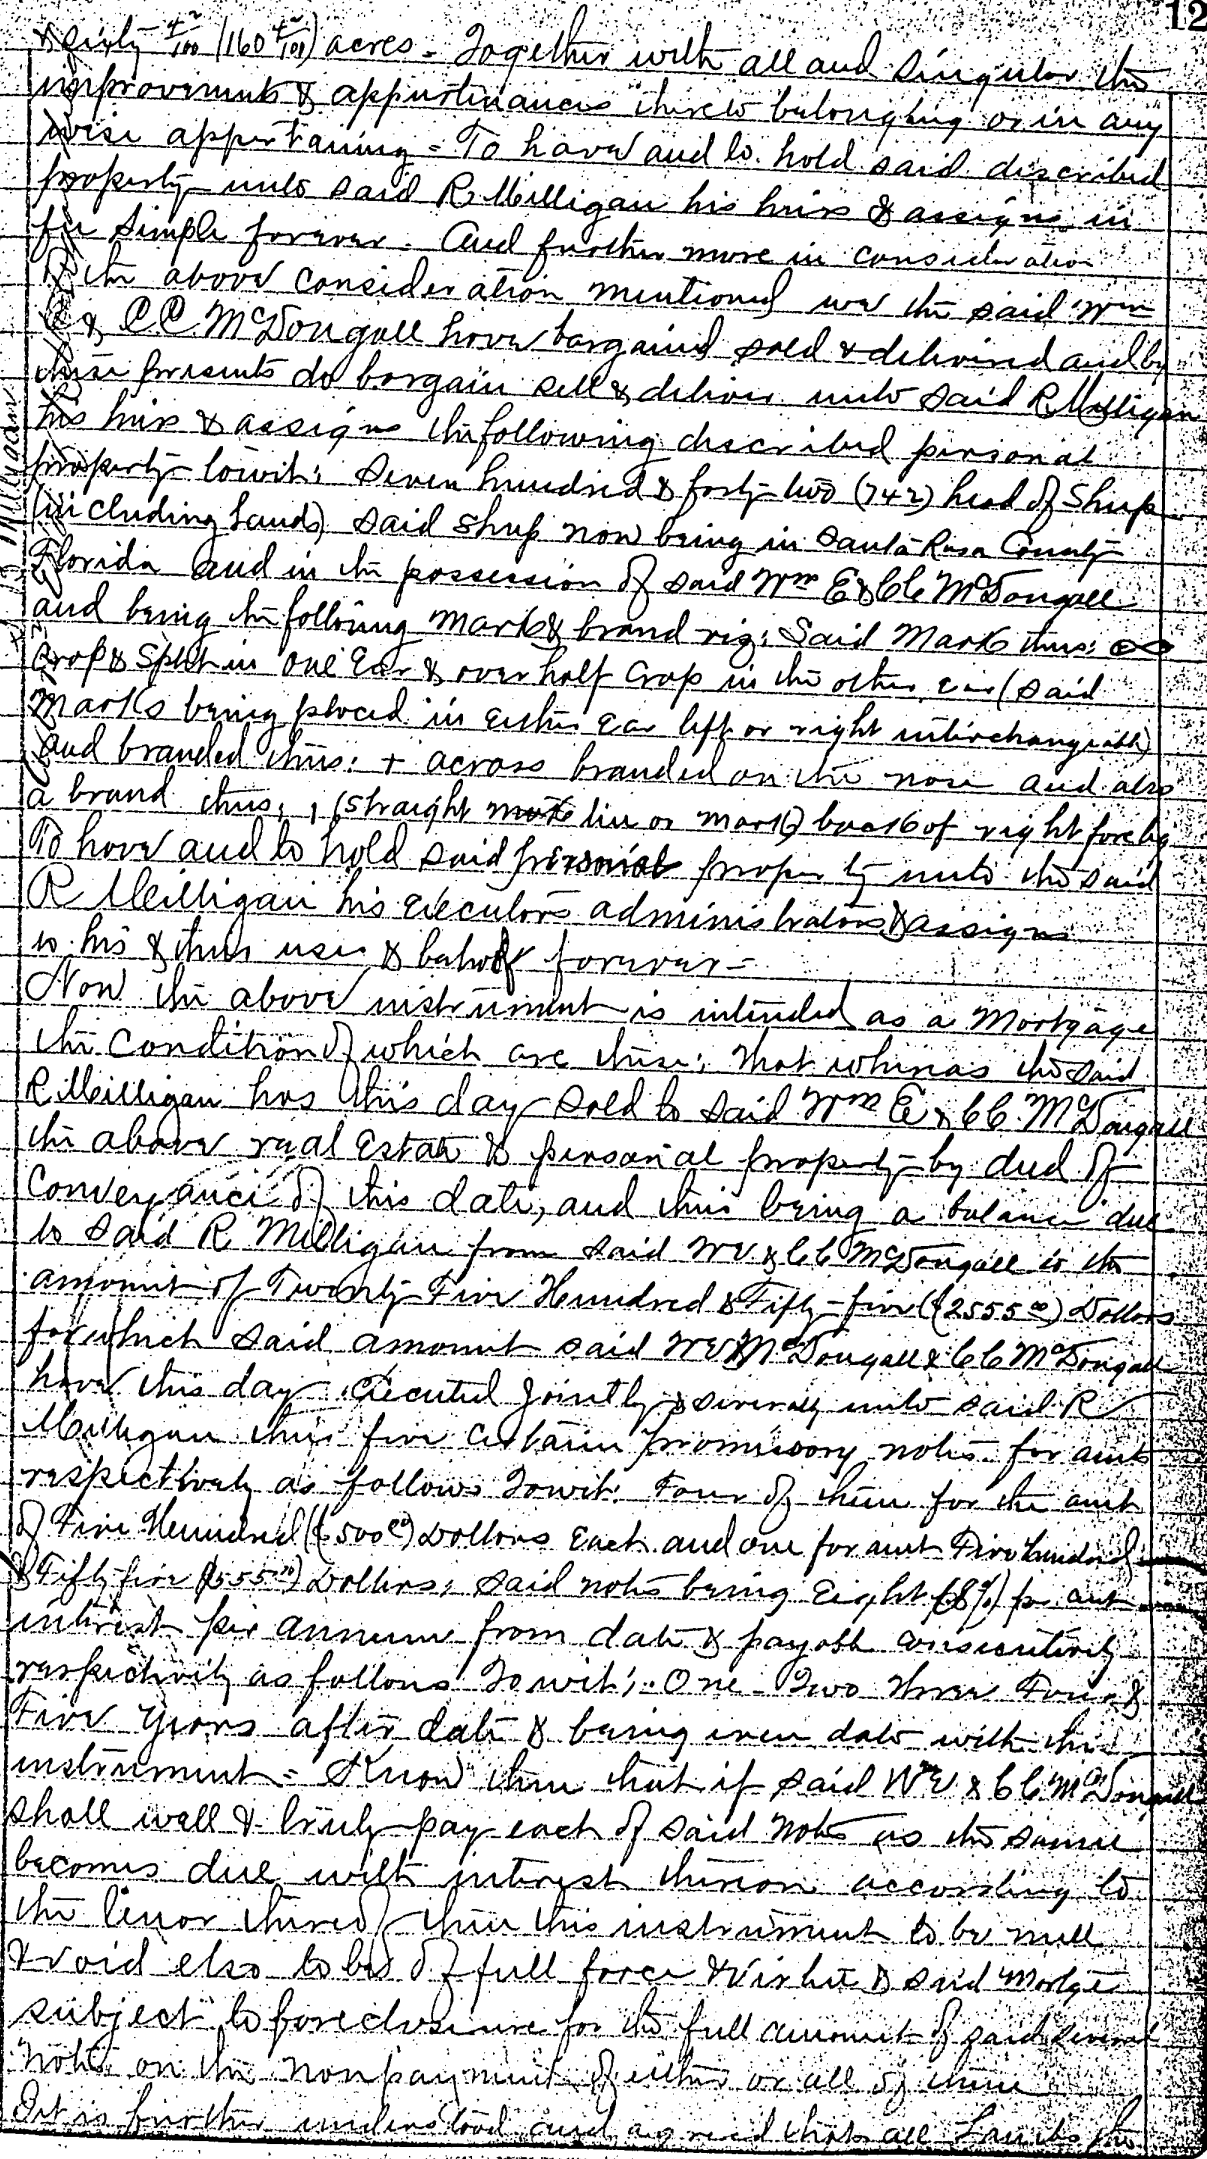 12
& sixty 42/100 (160 42/100) acres - Together with all and singular the
improvements & appurtinances thereto belonging or in any
wise appertaining - To have and to hold said described
property unto said R. Milligan his heirs & assigns in
fee simple forever. And further more in consideration
of the above consideration mentioned we the said Wm
E & C C McDougall have bargained sold & delivered and by
these presents do bargain sell & deliver unto said R Milligan
his heirs & assigns the following described personal
property towit: Seven hundred & forty two (742) head of Sheep
(including Lambs) said sheep now being in Santa Rosa County
Florida and in the possession of said Wm E & C C McDougall
and being the following mark & brand viz: Said Mark thus:
Crop & Split in one Ear & over half Crop in the other ear (said
marks being placed in either Ear left or right interchangeable)
and branded thus: + across branded on the nose and also
a brand thus: ı (straight line or mark) back of right fore leg
To have and to hold said personal property unto the said
R Milligan his executors administrators & assigns
to his & their use & behoof forever -
Now the above instrument is intended as a Mortgage
the Condition of which are these; that whereas the said
R. Milligan has this day sold to said Wm E & C C McDougall
the above real Estate & personal property by deed of
Conveyance of this date, and their being a balance due
to said R Milligan from said W E & C C McDougall to the
amount of Twenty Five Hundred & Fifty-five ($2555 00) Dollars
for which said amount said W E McDougall & C C McDougall
have this day executed jointly & severally unto said R
Milligan their five certain promissory notes for amts
respectively as follows Towit: Four of them for the amt
of Five Hundred ($500 00) Dollars Each and one for amt Five hundred
& Fifty five ($555 00) Dollars, said notes being Eight (8%) per cent
interest per annum from date & payable consecutively
respectively as follows Towit; One Two Three Four &
Five Years after date & being even date with this
instrument - Know then that if said W E & C C McDougall
shall well & truly pay each of said Notes as the same
becomes due with interest thereon according to
the tenor thereof then this instrument to be null
& void else to be of full force & virtue & said Mortge
subject to foreclosure for the full amount of said several
Notes on the nonpayment of either or all of them
It is further understood and agreed that all Lambs